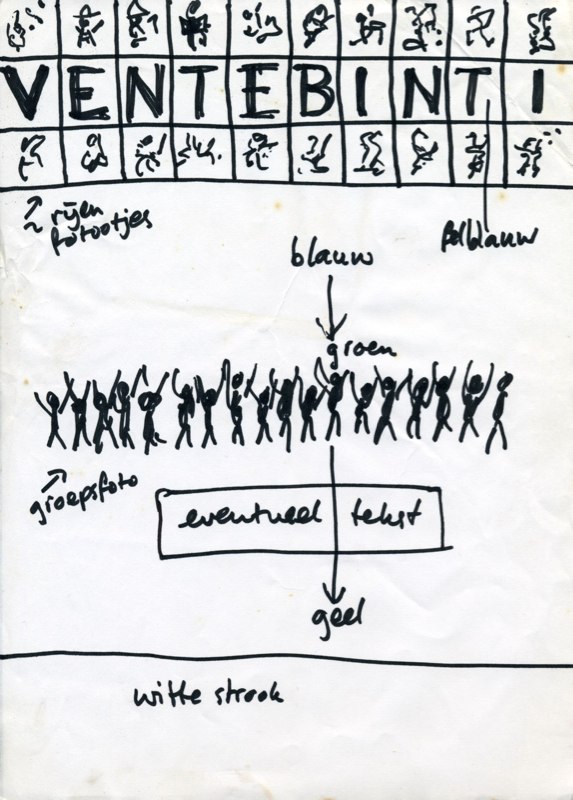 VENTEBINTI
2 rijen
fotootjes
felblauw
blauw
groen
groepsfoto
eventueel tekst
geel
witte strook